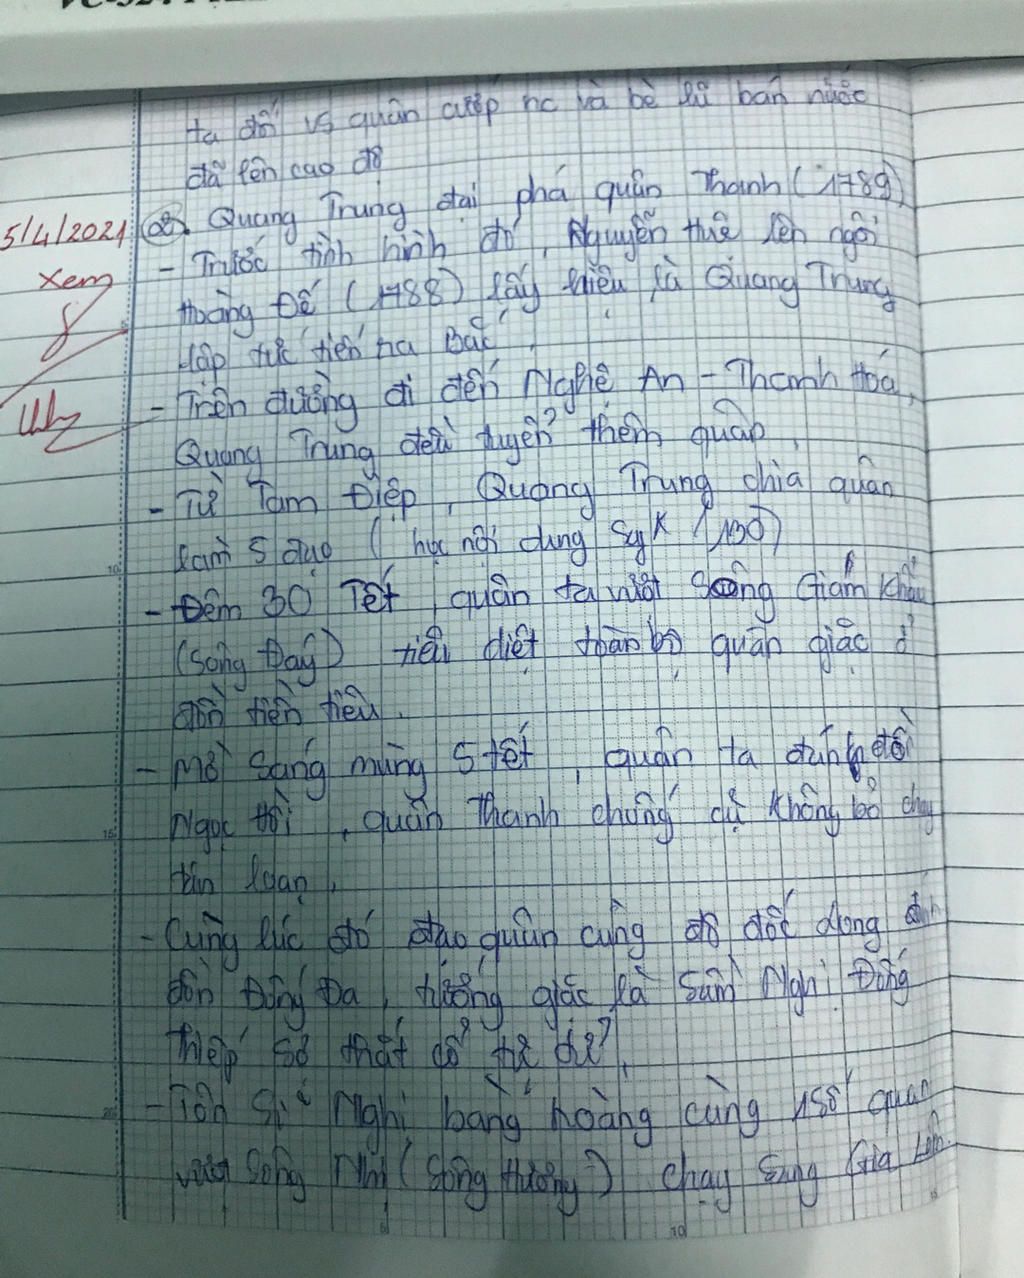 ta đối vs quân cướp nc và bè lũ bán nước
đã lên cao độ
5/4/2021
Xem
8
02. Quang Trung đại phá quân Thanh (1789)
- Trước tình hình đó, Nguyễn Huệ lên ngôi
Hoàng Đế (1788) lấy hiệu là Quang Trung
lập tức tiến ra Bắc.
- Trên đường đi đến Nghệ An - Thanh Hoá,
Quang Trung đều tuyển thêm quân.
- Từ Tam Điệp, Quang Trung chia quân
làm 5 đạo (học nội dung SgK/130)
- Đêm 30 Tết, quân ta vượt sông Gián Khẩu
(sông Đáy) tiêu diệt toàn bộ quân giặc ở
đồn tiền tiêu.
- Mờ sáng mùng 5 tết, quân ta đánh đồn
Ngọc Hồi, quân Thanh chống cự không bỏ chạy
tán loạn.
- Cùng lúc đó đạo quân cùng đô đốc dong đánh
đồn Đống Đa, tướng giặc là Sầm Nghi Đống
thiếp sợ thắt cổ tự tử.
- Tôn Sĩ Nghị bàng hoàng cùng 1 số quan
vượt sông Nhị (sông Hương) chạy sang Gia Lâm.